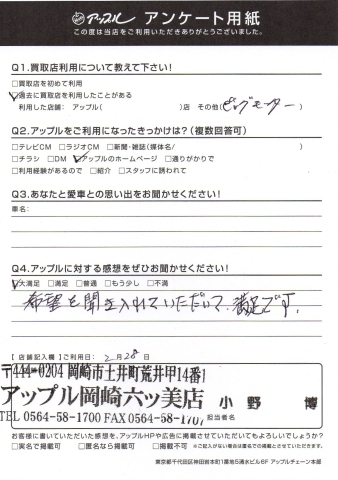 アップル アンケート用紙
この度は当店をご利用いただきありがとうございました。
Q1.買取店利用について教えて下さい!
□買取店を初めて利用
□過去に買取店を利用したことがある
利用した店舗: アップル( )店 その他(ビッグモーター)
Q2.アップルをご利用になったきっかけは?(複数回答可)
□テレビCM □ラジオCM □新聞・雑誌(媒体名/ )
□チラシ □DM ☑アップルのホームページ □通りがかりで
□利用経験があるので □紹介 □スタッフに誘われて
Q3.あなたと愛車との思い出をお聞かせください!
車名:
Q4.アップルに対する感想をぜひお聞かせください!
☑大満足 □満足 □普通 □もう少し □不満
希望を聞き入れていただいて、満足です。
【店舗記入欄】ご利用日: 2月28日
〒444-0204 岡崎市土井町荒井甲14番1
アップル岡崎六ッ美店 小野 博
TEL 0564-58-1700 FAX 0564-58-1707 担当者名
お客様に書いていただいた感想を、アップルHPや広告に掲載させていただいてもよろしいでしょうか?
□実名で掲載可 □匿名なら掲載可 □掲載不可 ※ご記入がない場合は匿名での掲載とさせていただきます。
東京都千代田区神田岩本町1番地5清水ビル6F アップルチェーン本部